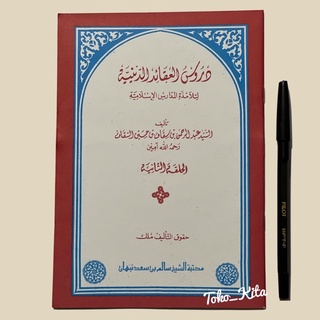 دروس العقائد الدينية
لتلامذة المدارس الإسلامية
تأليف
السيد عبد الرحمن بن سقاف بن حسين السقاف
رحمه الله آمين
الحلقة الثانية
حقوق التأليف ملك
مكتبة الشيخ سالم بن سعد نبهان
Toko_Kita
PILOT